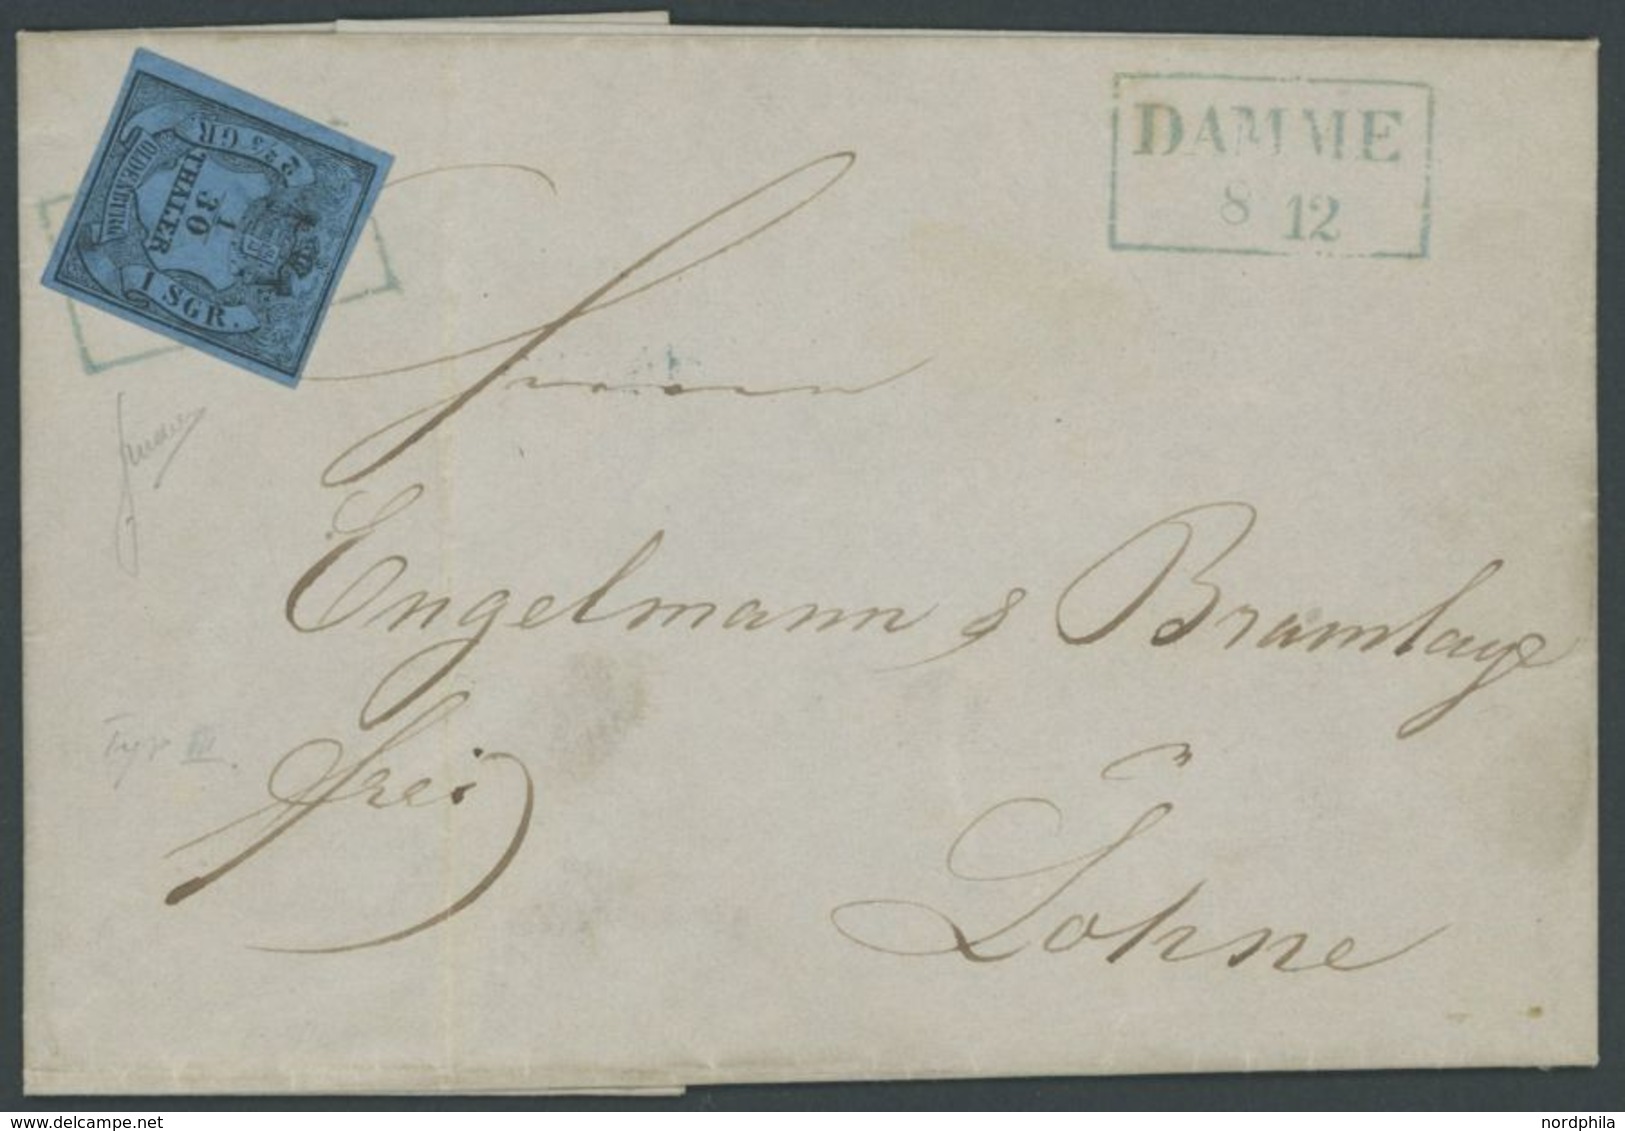 DAMME
8 12
2 2/5 GR
OLDENBURG
1/30
THALER
1 SGR.
Herrn
Engelmann & Bramlage
frei
Löhne
Typ III
www.delcampe.net
nordphila